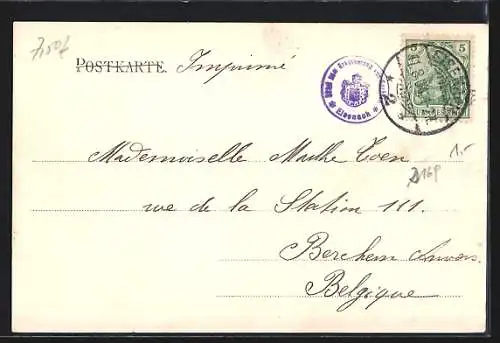 7,50f
POSTKARTE. Imprimé
Eisenach
5
1.-
Mademoiselle Marthe Coen
2169
rue de la Station 111.
Berchem Anvers.
Belgique